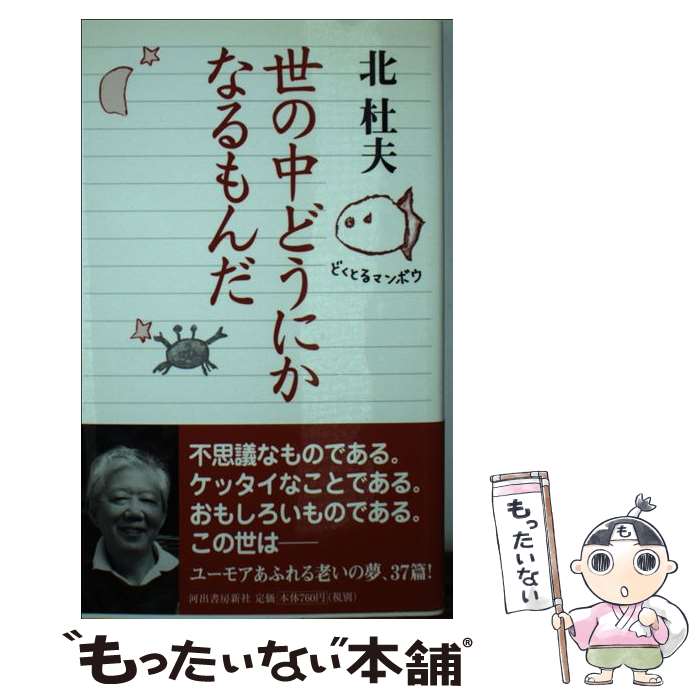 北 杜夫
世の中どうにか
なるもんだ
どくとるマンボウ
不思議なものである。
ケッタイなことである。
おもしろいものである。
この世は——
ユーモアあふれる老いの夢、37篇!
河出書房新社 定価 本体760円(税別)
もったいない
も
"もったいない"本舗®